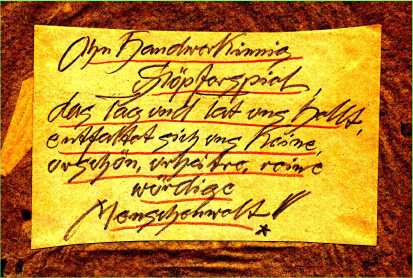 Ohn Handwerkinnig
Schöpferspiel,
das Tag und Tat uns hellt,
entfaltet sich uns keine,
urschön, urheitre, reine
würdige
Menschenwelt!
*